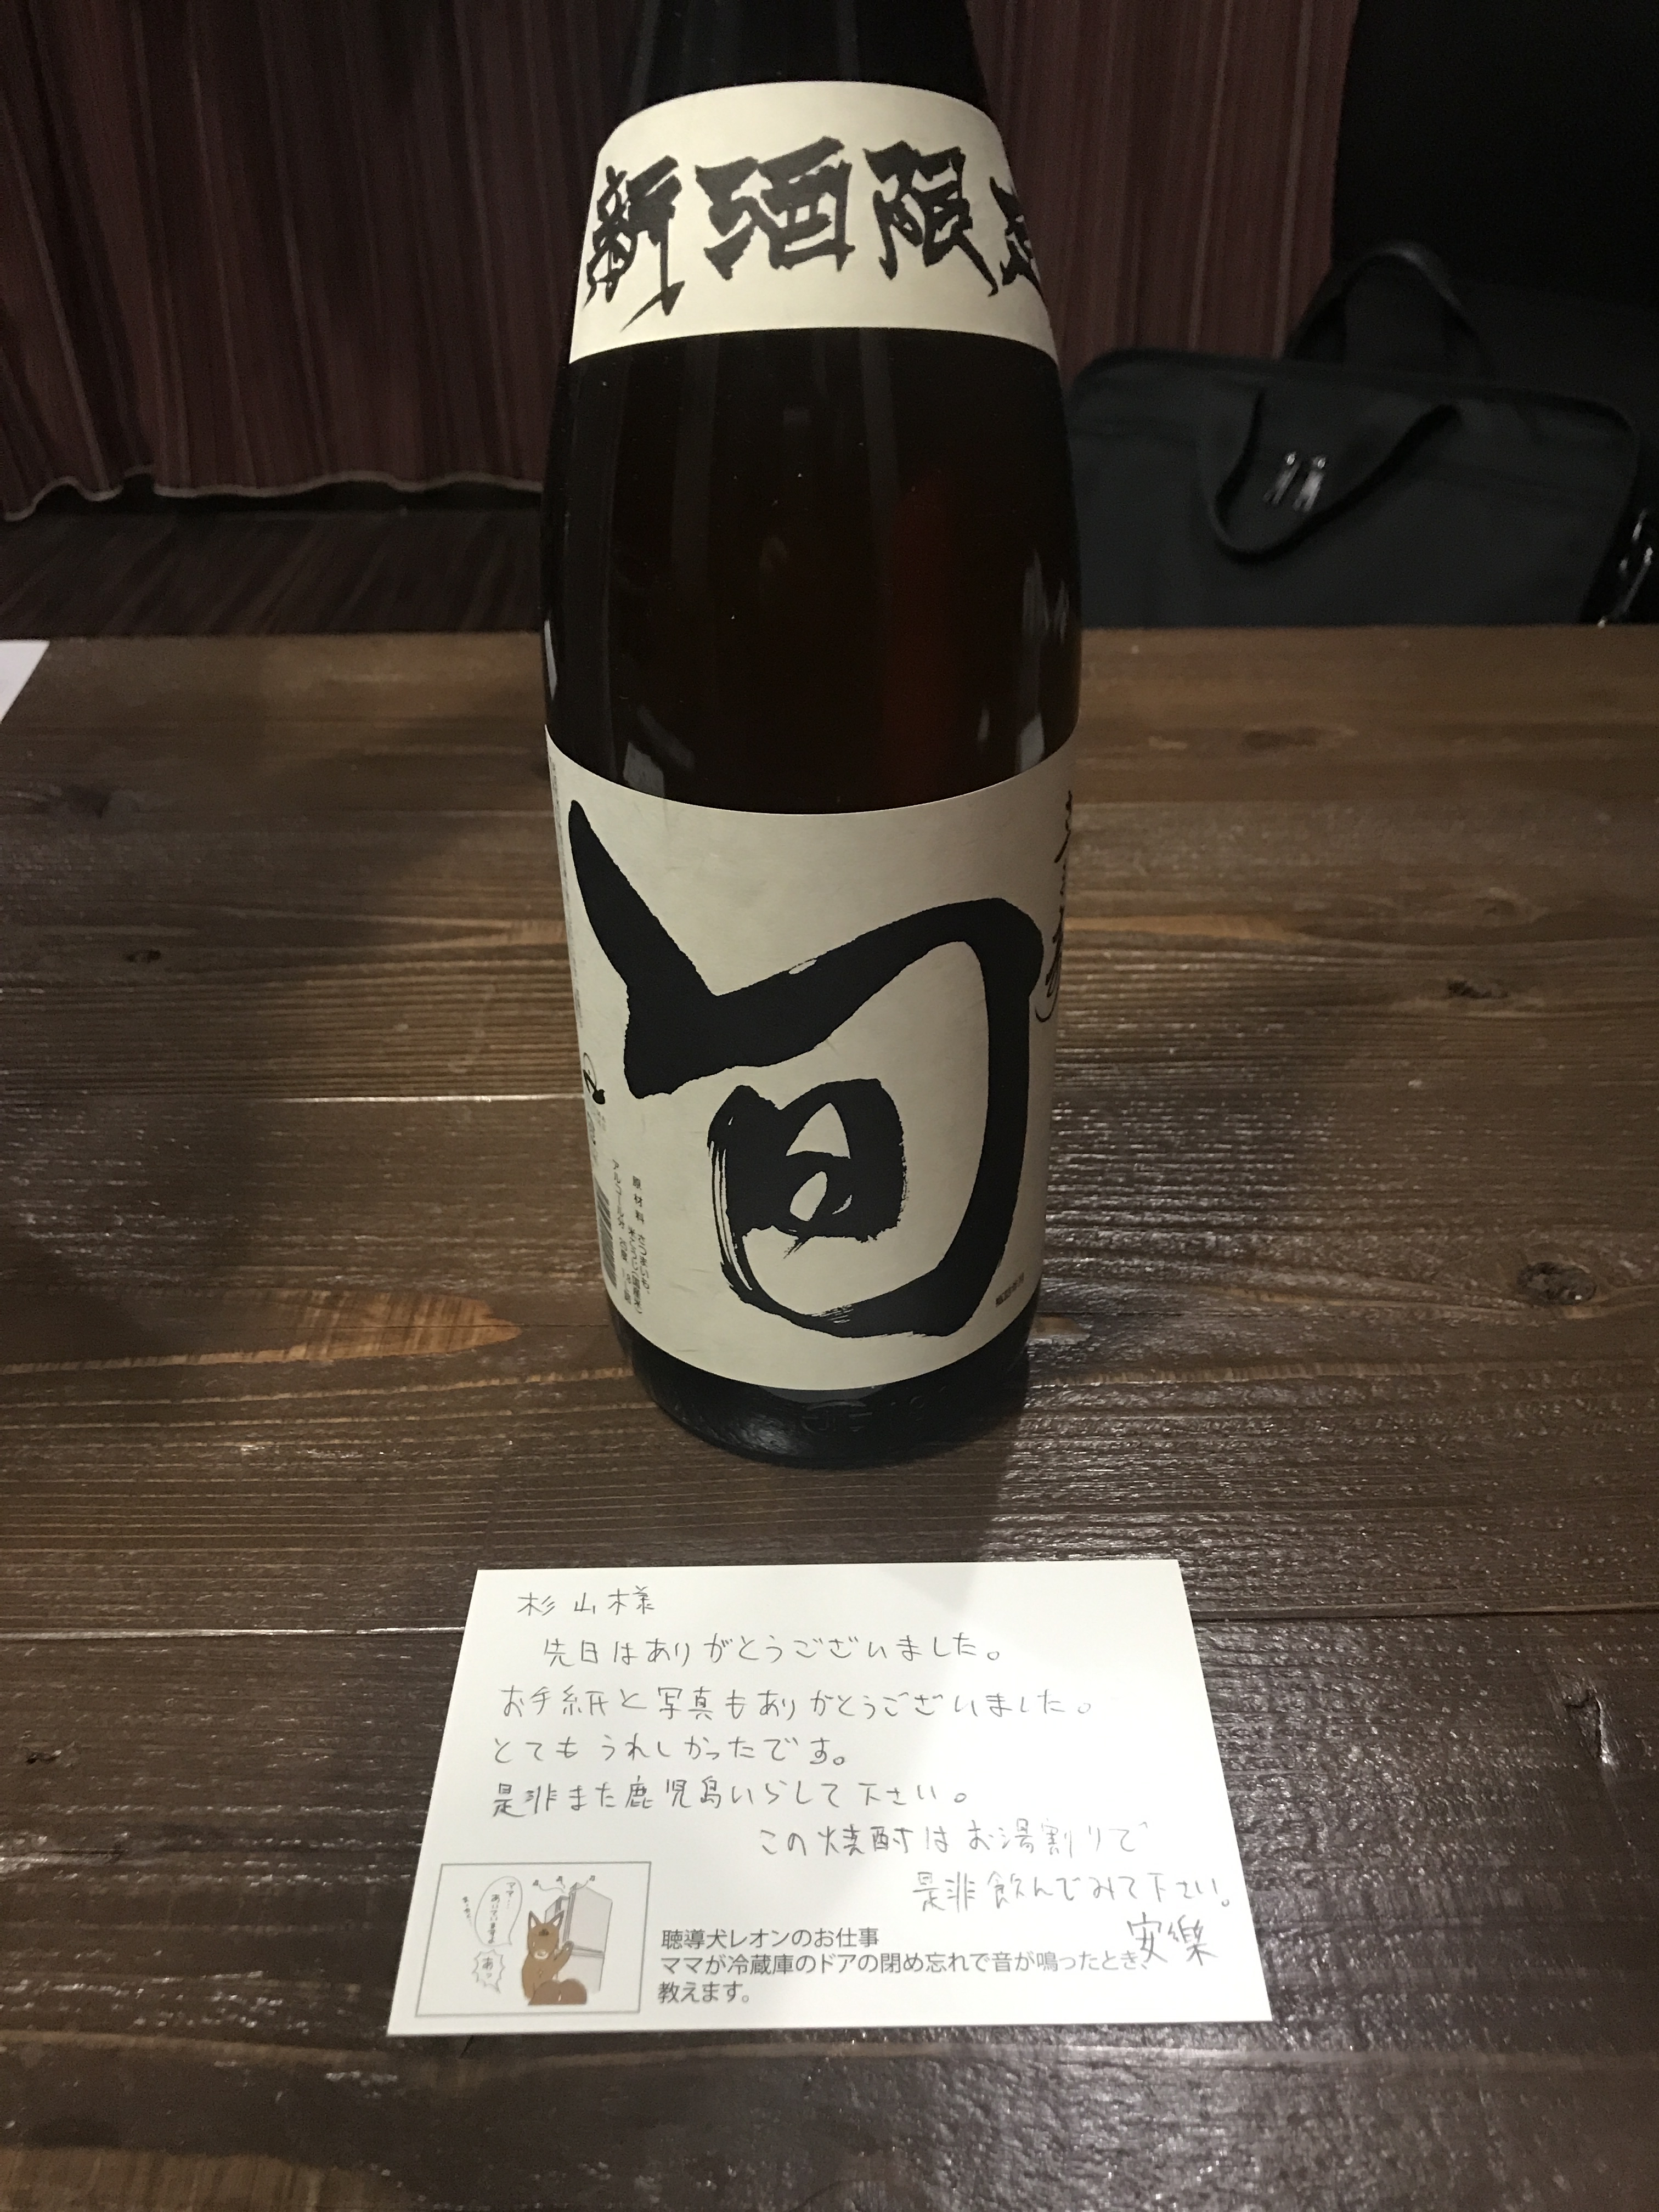 新酒限定
旬
原材料
杉山様
先日はありがとうございました。
お手紙と写真もありがとうございました。
とてもうれしかったです。
是非また鹿児島いらして下さい。
この焼酎はお湯割りで
是非飲んでみて下さい。
安樂
ママ…
あいていますよ
あッ
聴導犬レオンのお仕事
ママが冷蔵庫のドアの閉め忘れで音が鳴ったとき、
教えます。